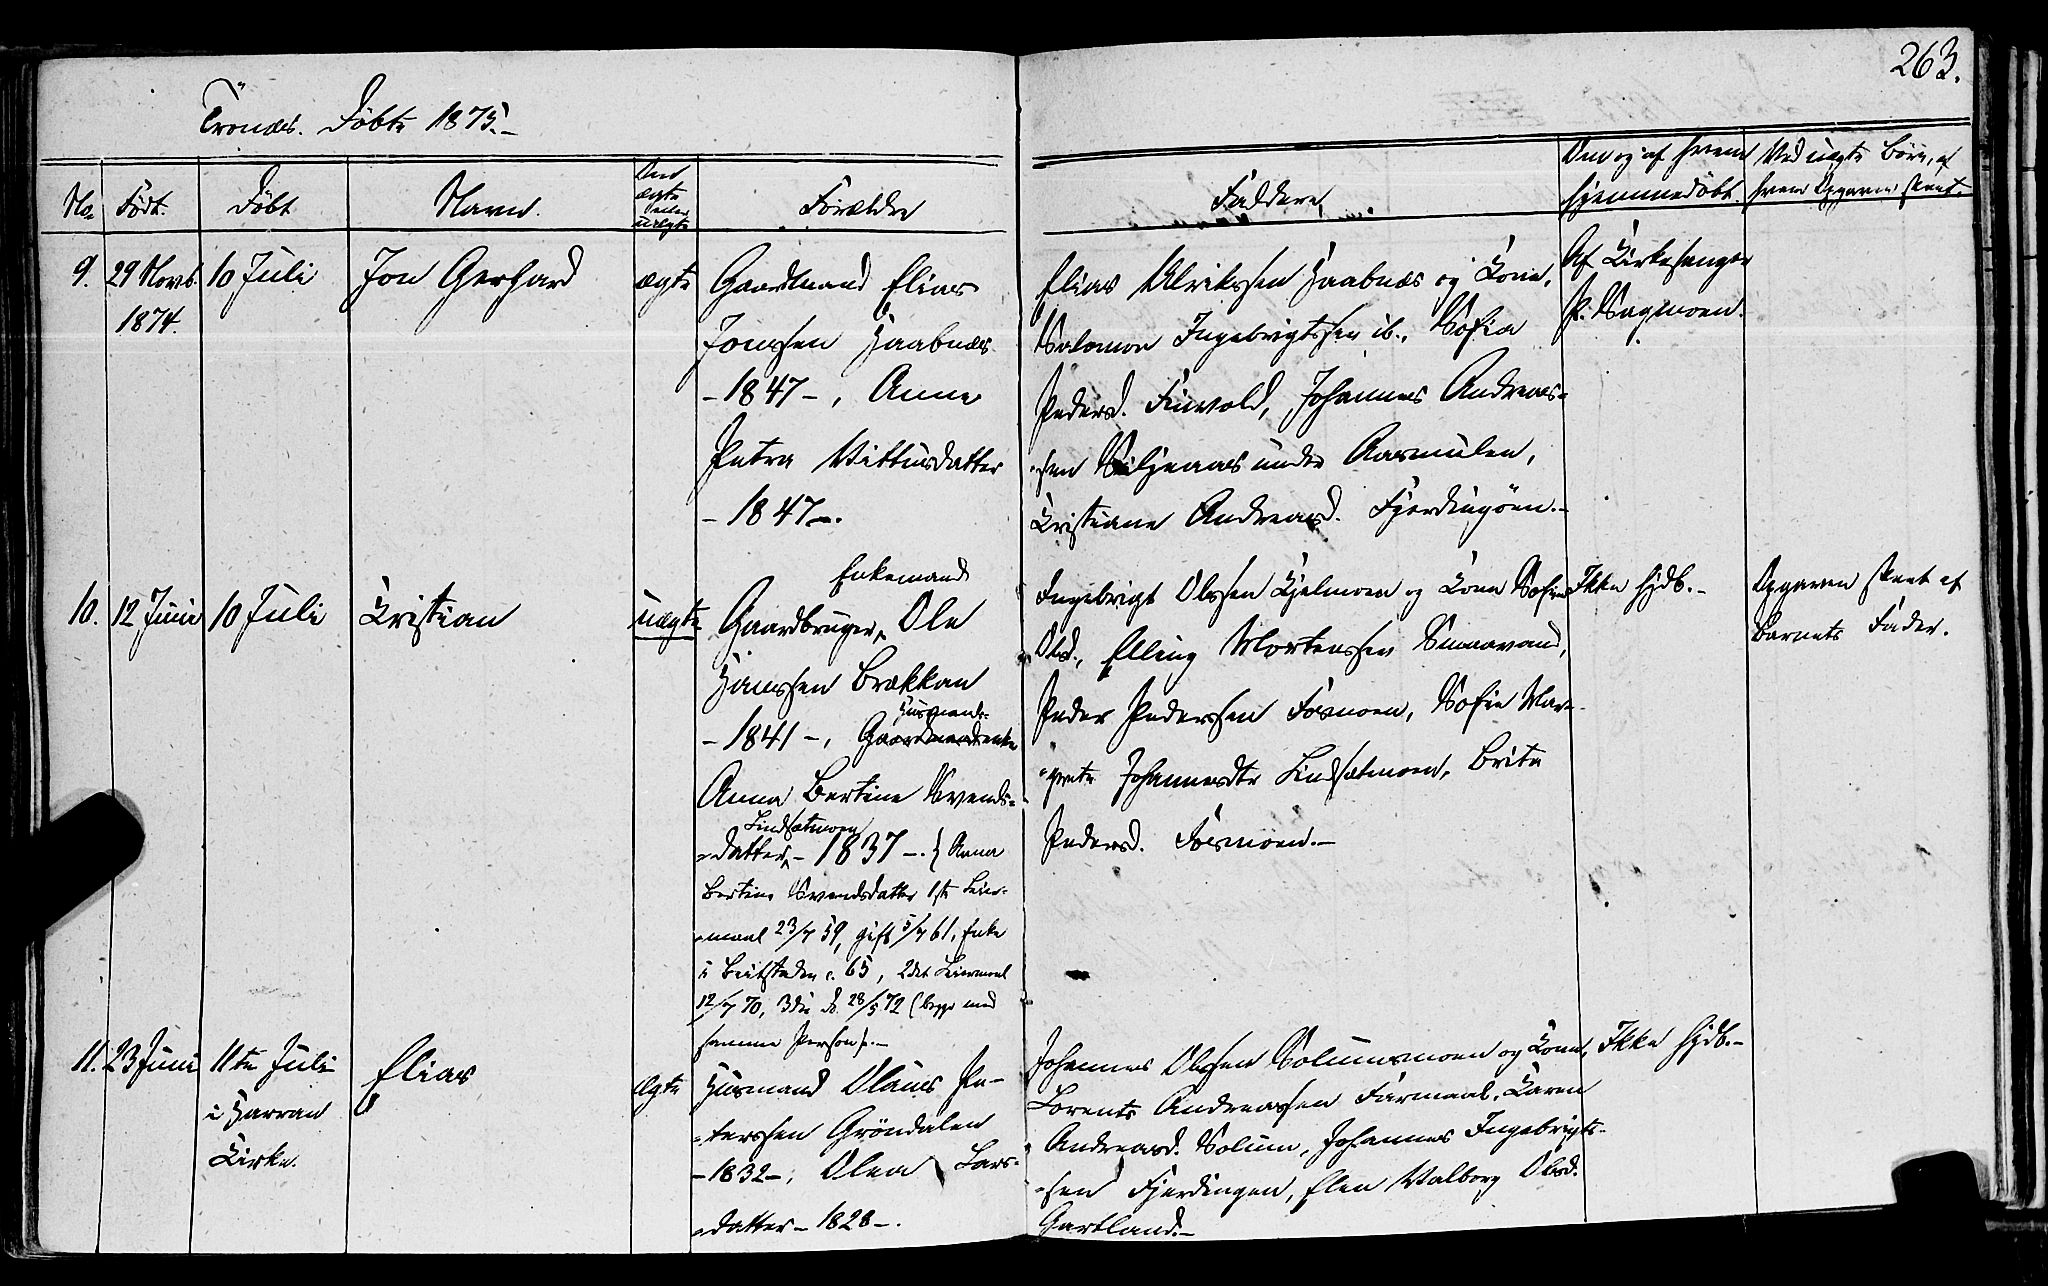 263.
Trones. Døbte 1875.-
No. Født. Døbt Navn. Om ægte eller uægte Forældre Faddere Om og af hvem hjemmedøbt. Ved uægte Børn, af hvem Opgaven skeet.
9. 29 Novb. 1874. 10 Juli Jon Gerhard ægte
Gaardmand Elias
Jonssen Haabnes
-1847-, Anne
Petra Vittusdatter
-1847-.
Elias Ulrikssen Haabnes og Kone,
Salomon Ingebrigtssen ib., Sofia
Pedersd. Finvold, Johannes Andreas-
-sen Seljeaas under Aasmulen,
Kristiane Andreasd. Fjerdingöen.-
Af Kirkesanger
P. Sagmoen.
10. 12 Juni 10 Juli Kristian uægte
Enkemand
Gaardbruger, Ole
Hanssen Brækkan
-1841-, Husmands-
Gaardmandsenke
Anna Bertine Svends-
-datter, Lindsetmoen -1837-. } Anna
Bertine Svendsdatter 1ste Leier-
-maal 23/7 59, gift 5/7 61, Enke
i Beitstaden c. 65, 2det Leiermaal
12/7 70, 3die do. 28/5 72 (begge med
samme Person).-
Ingebrigt Olssen Kjelmoen og Kone Sofie
Olsd., Elling Mortenssen Smaavand,
Peder Pederssen Fosmoen, Sofie Mar-
-grete Johannesdtr Lindsetmoen, Brita
Pedersd. Fosmoen.-
Ikke hjdb.-
Opgaven skeet af
Barnets Fader.
11. 23 Juni 11te Juli
i Harran
Kirke.
Elias ægte
Husmand Olaus Pe-
-terssen Gröndalen
-1832-, Olea Lars-
-datter -1828-.
Johannes Olssen Solumsmoen og Kone,
Lorents Andreassen Furmaal, Karen
Andreasd. Solum, Johannes Ingebrigts-
-sen Fjerdingen, Elen Valborg Olsd.
Gartland.-
Ikke hjdb.-